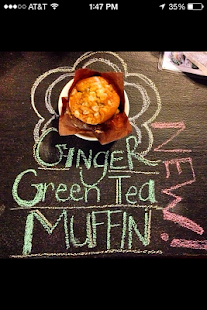 AT&T 1:47 PM 35%
GINGER
Green Tea
MUFFIN
NEW!